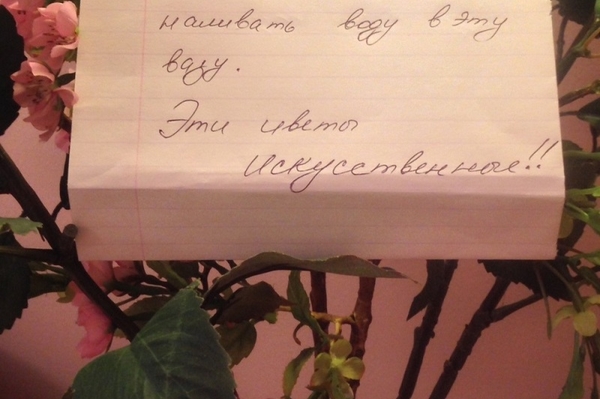 наливать воду в эту
вазу.
Эти цветы
искусственные!!